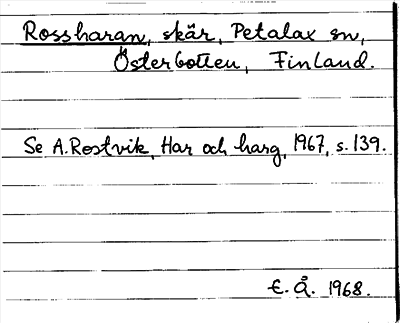 Rossharan, skär, Petalax sn,
Österbotten, Finland.
Se A. Rostvik, Har och harg, 1967, s. 139.
E. Å. 1968.